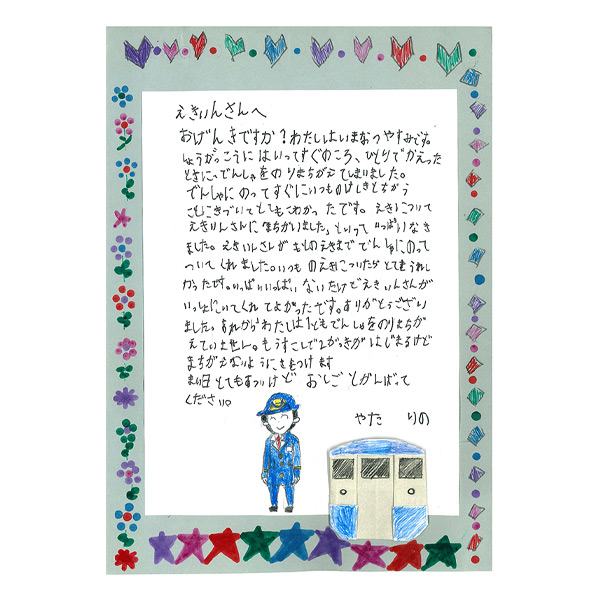 えきいんさんへ
おげんきですか?わたしはいまなつやすみです。
しょうがっこうにはいってすぐのころ、ひとりでかえった
ときに、でんしゃをのりまちがえてしまいました。
でんしゃにのってすぐにいつものけしきとちがう
ことにきづいてとてもこわかったです。えきについて
えきいんさんに「まちがいました」といっていっぱいなき
ました。えきいんさんがもとのえきまででんしゃにのって
ついてくれました。いつものえきについたらとてもうれし
かったです。いっぱいいっぱいないたけどえきいんさんが
いっしょにいてくれてよかったです。ありがとうござい
ました。それからわたしは1どもでんしゃをのりまちが
えていません。もうすこしで2がっきがはじまるけど
まちがえないようにきをつけます
まい日とてもあついけどおしごとがんばって
ください。
やた りの